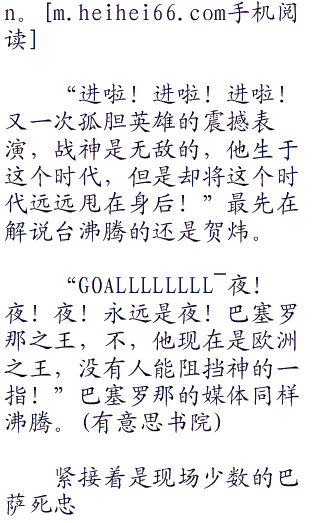 n。[m.heihei66.com手机阅
读]
“进啦！进啦！进啦！
又一次孤胆英雄的震撼表
演，战神是无敌的，他生于
这个时代，但是却将这个时
代远远甩在身后！”最先在
解说台沸腾的还是贺炜。
“GOALLLLLLLL¯夜！
夜！夜！永远是夜！巴塞罗
那之王，不，他现在是欧洲
之王，没有人能阻挡神的一
指！”巴塞罗那的媒体同样
沸腾。(有意思书院)
紧接着是现场少数的巴
萨死忠